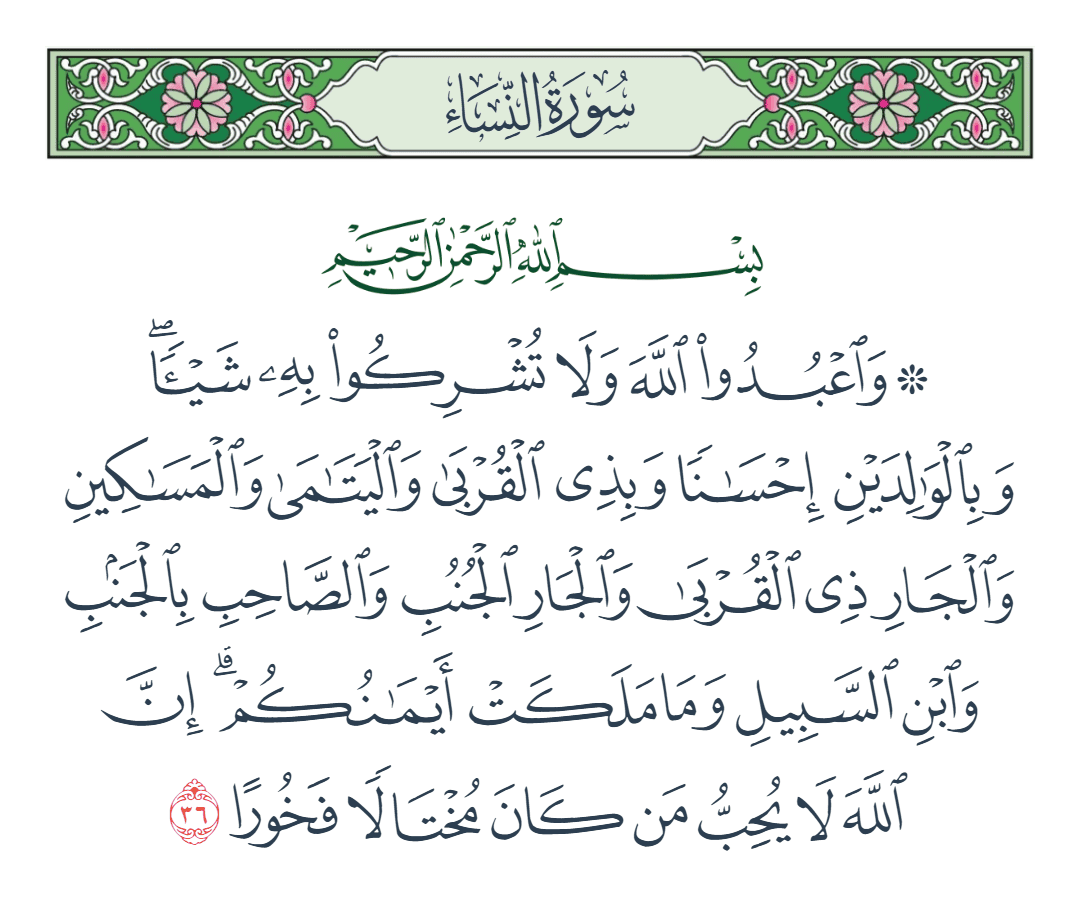 سُورَةُ النِّسَاءِ
بِسْمِ ٱللَّهِ ٱلرَّحْمَٰنِ ٱلرَّحِيمِ
۞ وَٱعْبُدُوا۟ ٱللَّهَ وَلَا تُشْرِكُوا۟ بِهِۦ شَيْـًٔا ۖ
وَبِٱلْوَٰلِدَيْنِ إِحْسَـٰنًا وَبِذِى ٱلْقُرْبَىٰ وَٱلْيَتَـٰمَىٰ وَٱلْمَسَـٰكِينِ
وَٱلْجَارِ ذِى ٱلْقُرْبَىٰ وَٱلْجَارِ ٱلْجُنُبِ وَٱلصَّاحِبِ بِٱلْجَنۢبِ
وَٱبْنِ ٱلسَّبِيلِ وَمَا مَلَكَتْ أَيْمَـٰنُكُمْ ۗ إِنَّ
ٱللَّهَ لَا يُحِبُّ مَن كَانَ مُخْتَالًا فَخُورًا ٣٦